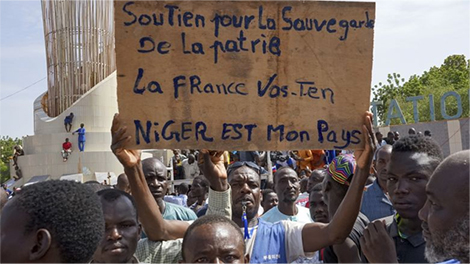 SouTien pour La Sauvegarde
De La patrie
La FRANCE Vas-Ten
NiGER EST Mon PayS
ATIO